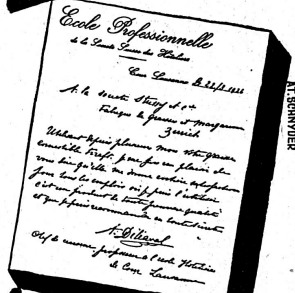 Ecole Professionnelle
de la Société Suisse des Hôteliers
Cour Lausanne 22/3 1926
A la Société Stüssy & Cie
Fabrique de Graisses et Margarine
Zurich
Utilisant depuis plusieurs mois votre graisse
comestible je me fais un plaisir de
vous dire qu'elle me donne entière satisfaction
pour tous les emplois où je puis l'utiliser
c'est un produit de toute première qualité
et que je puis recommander en toute
A. Dilieval
Chef de cuisine professeur à l'école Hôtelière
de Cour Lausanne
AT. SCHNYDER